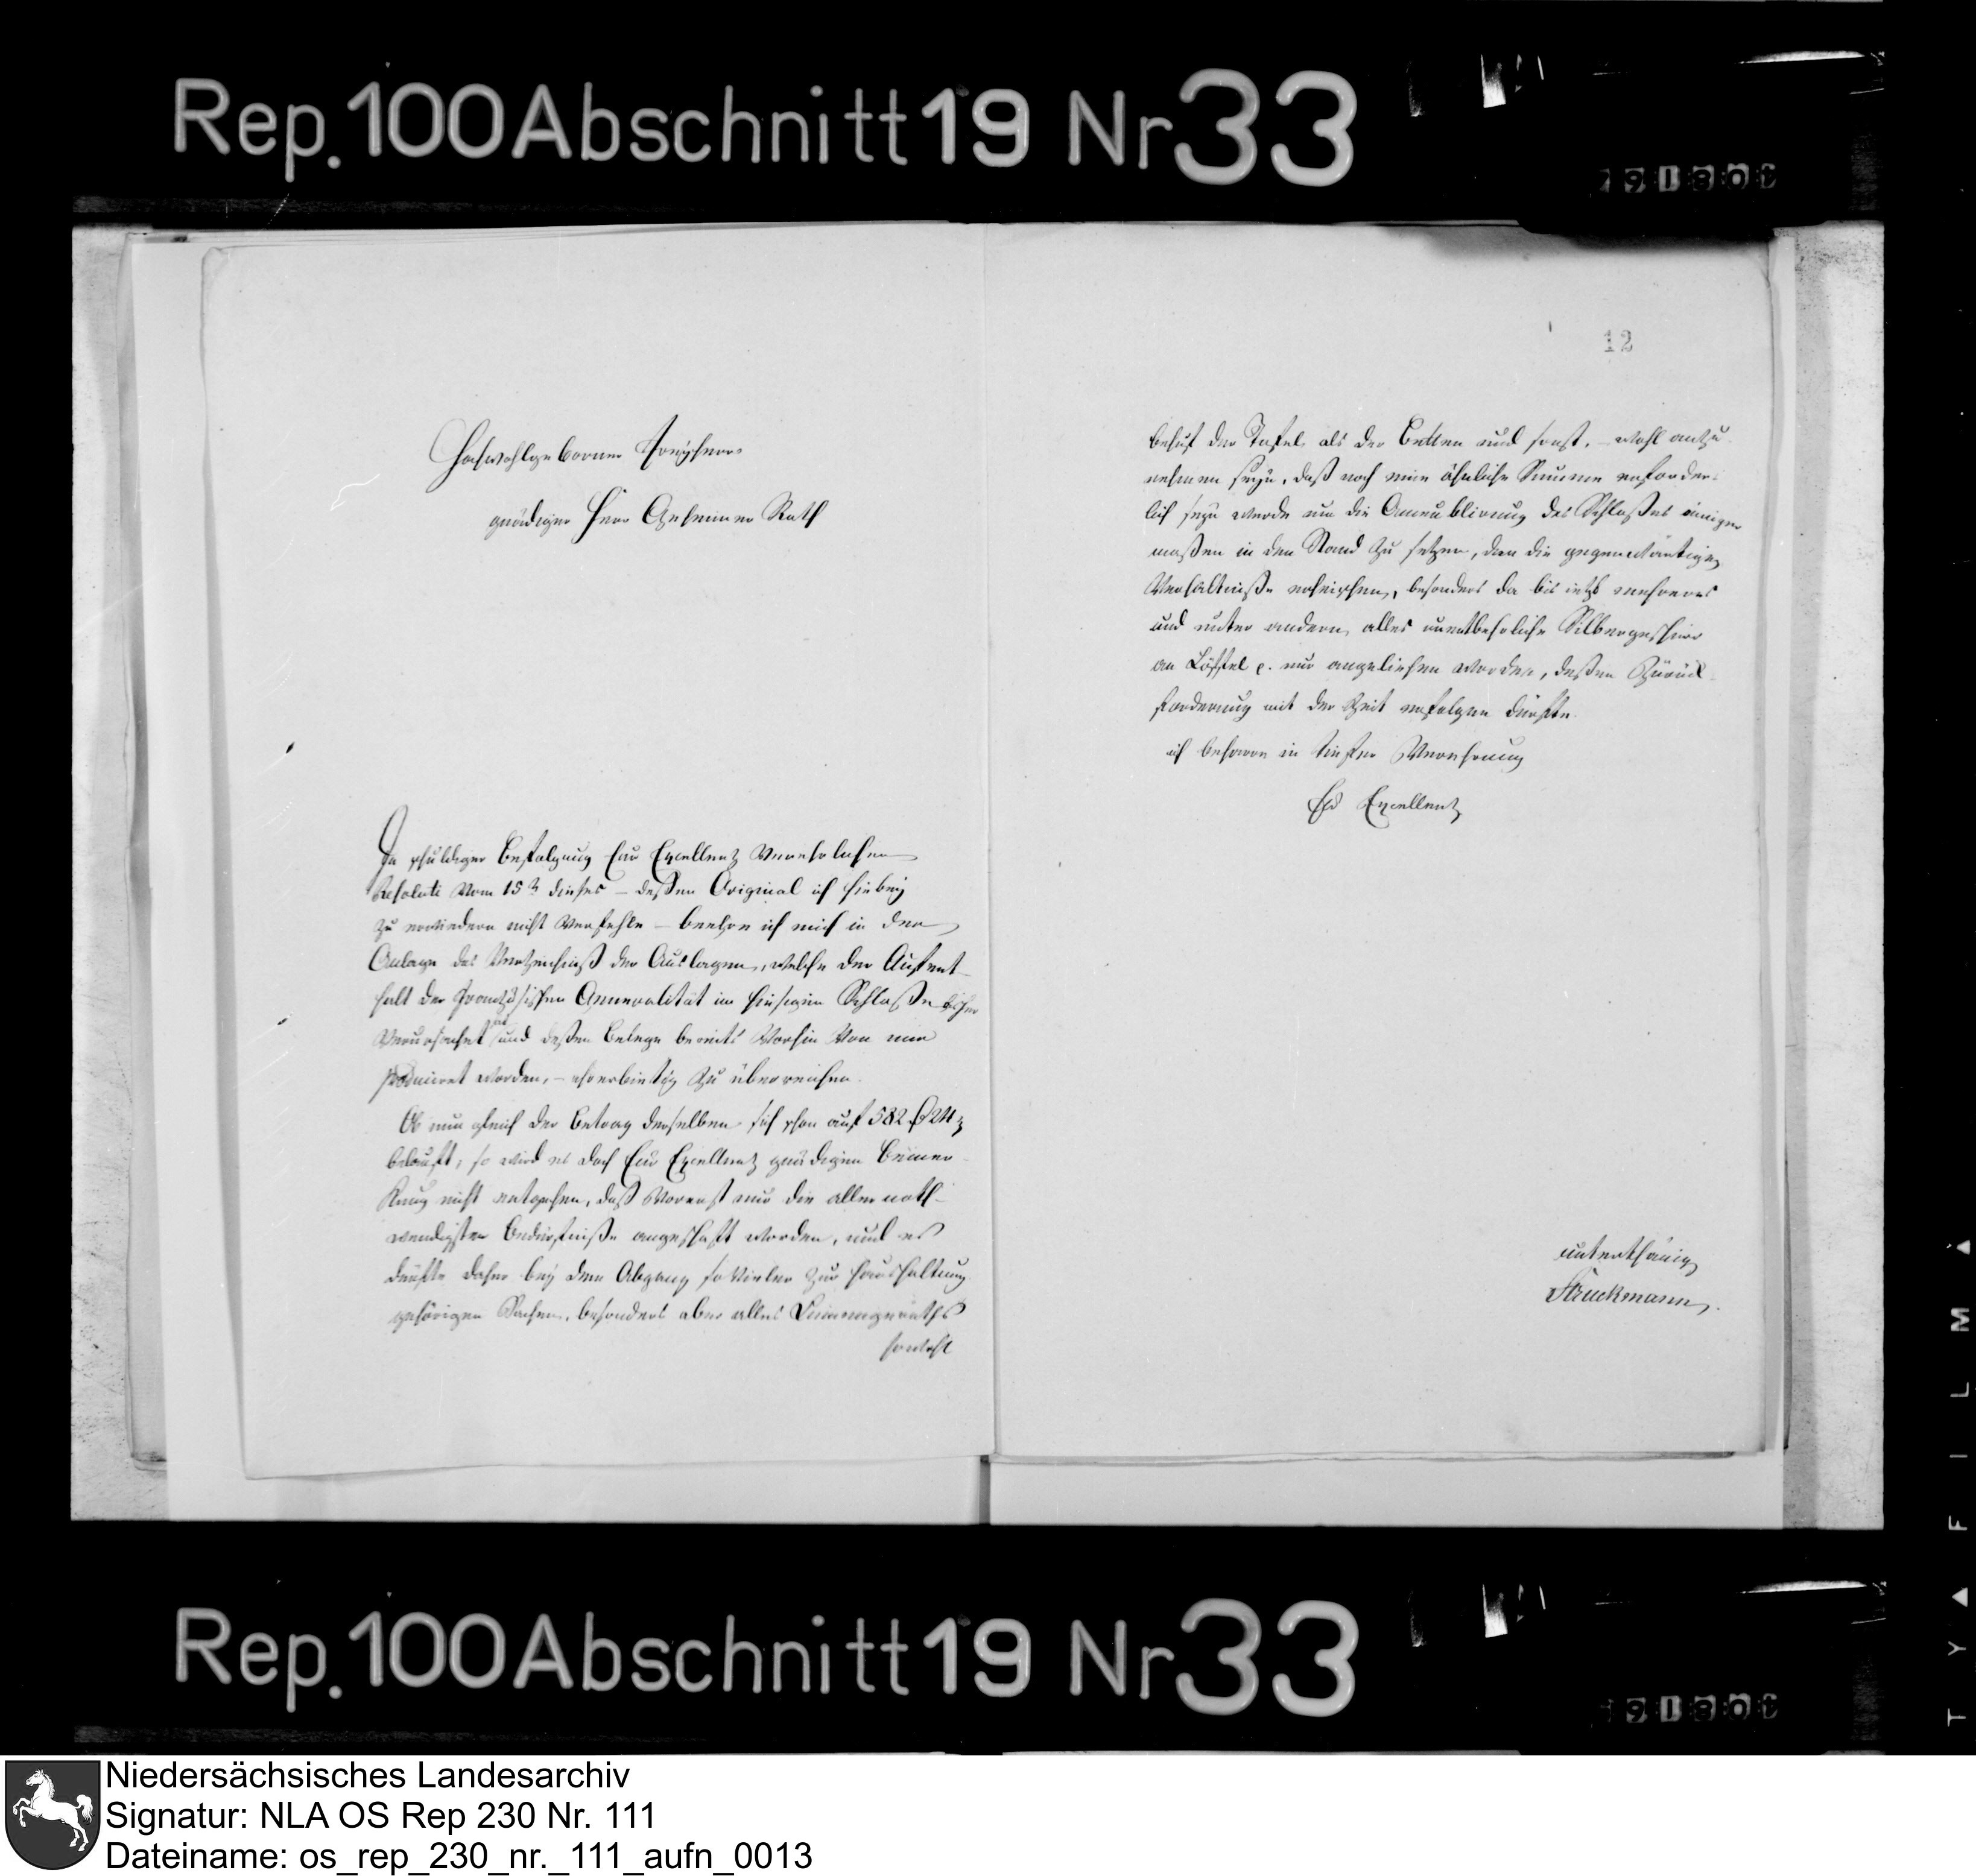 Rep. 100 Abschnitt 19 Nr 33
Hochwohlgeborner Freyherr
gnädiger Herr Geheimer Rath
In schuldiger Befolgung Eur Excellenz Verehrlichen
Resoluti vom 15n dieses – deßen Original ich hiebey
zu erwiedern nicht verfehle – beehre ich mich in der
Anlage das Verzeichniß der Auslagen, welche der Aufent-
halt der Französischen Generalität im hiesigen Schloße bisher
verursachet hat und deßen Belege bereits vorhin von mir
produciret worden, – ehrerbietig zu überreichen.
Ob nun gleich der Betrag derselben sich schon auf 582
beläuft, so wird es doch Eur Excellenz gnädigen Bemer-
kung nicht entgehen, daß vorerst nur die aller noth-
wendigsten Bedürfniße angeschaft worden, und es
dürfte daher bey dem Abgang so vieler zur Haushaltung
gehörigen Sachen, besonders aber alles Linnengeräths
sowohl
12
behuf der Tafel als der Betten und sonst, wohl anzu-
nehmen seyn, daß noch eine ähnliche Summe erforder-
lich seyn werde um die Ameublirung des Schloßes einiger
maßen in den Stand zu setzen, den die gegenwärtigen
Verhältniße erheischen, besonders da bis jetzt mehreres
und unter andern alles unentbehrliche Silbergeschirr
an Löffel c. nur angeliehen worden, deßen Zurück-
forderung mit der Zeit erfolgen dürfte.
ich beharre in tiefster Verehrung
Ew Excellenz
unterthänig
Struckmann.
Rep. 100 Abschnitt 19 Nr 33
TYAFILMA
Niedersächsisches Landesarchiv
Signatur: NLA OS Rep 230 Nr. 111
Dateiname: os_rep_230_nr._111_aufn_0013